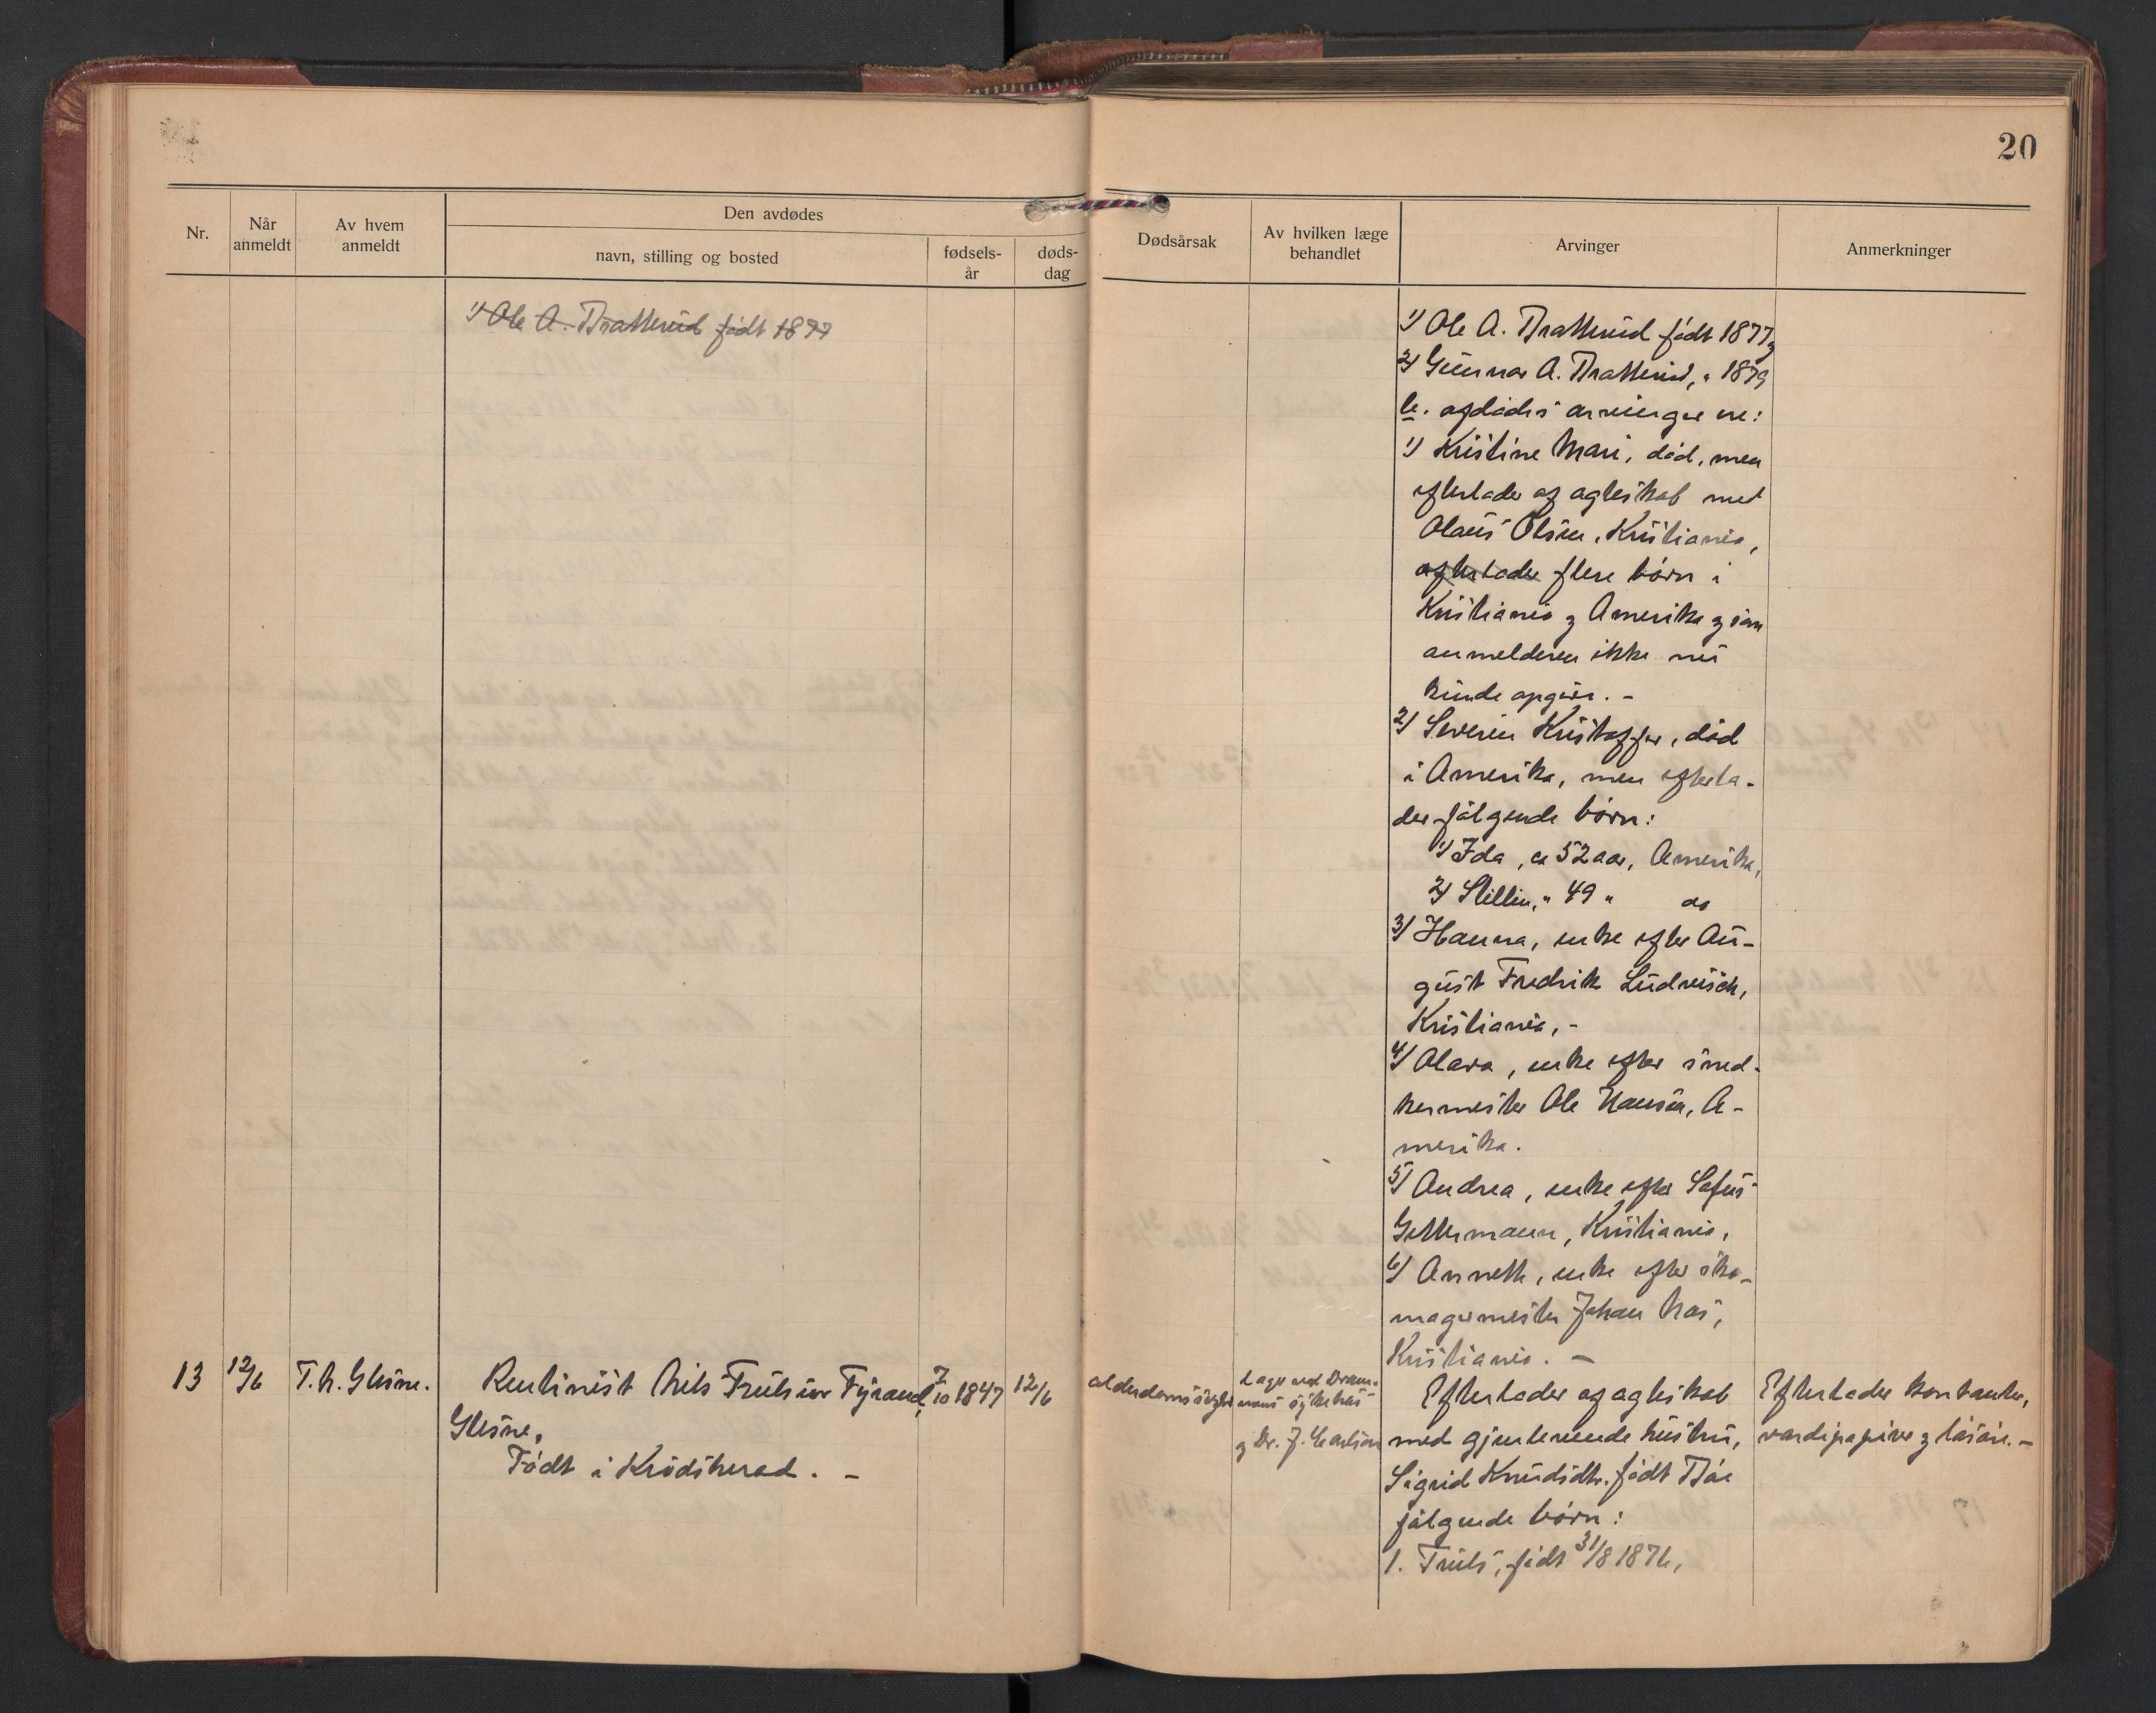 20
Nr.
Når anmeldt
Av hvem anmeldt
Den avdødes
navn, stilling og bosted
fødsels-år
døds-dag
Dødsårsak
Av hvilken læge behandlet
Arvinger
Anmerkninger
1) Ole A. Bratterud født 1877
1) Ole A. Bratterud født 1877,
2) Gunnar A. Bratterud, " 1879
b. afdødes arvinger ere:
1) Kristine Mari, død, men
efterlader af ægteskab med
Olaus Olsen, Kristiania,
efterlader flere børn i
Kristiania og Amerika og som
anmelderen ikke nu
kunde opgive. -
2) Severin Kristoffer, død
i Amerika, men efterla-
der følgende børn:
1) Ida, ca 52 aar, Amerika,
2) " 49 " do
3) Hanna, enke efter Au-
gust Fredrik
Kristiania, -
4) Olava, enke efter sned-
kermester Ole Hansen, A-
merika.
5) Andrea, enke efter Sofus
Kristiania,
6) Anneth, enke efter sko-
magermester Johan
Kristiania. -
13 12/6 T. N. Glesne. Rentinist Nils Trulsen Fyrand 7/10 1847 12/6 alderdomssvaghet Læge ved Dram- Efterlader af ægteskab Efterlader kontanter,
Glesne, mens sykehus
og Dr. J. Carlson med gjenlevende hustru, værdipapirer og løsøre. -
Født i Krødsherad. - Sigrid Knudsdtr. født Bøe
følgende børn:
1. Truls, født 31/8 1876,